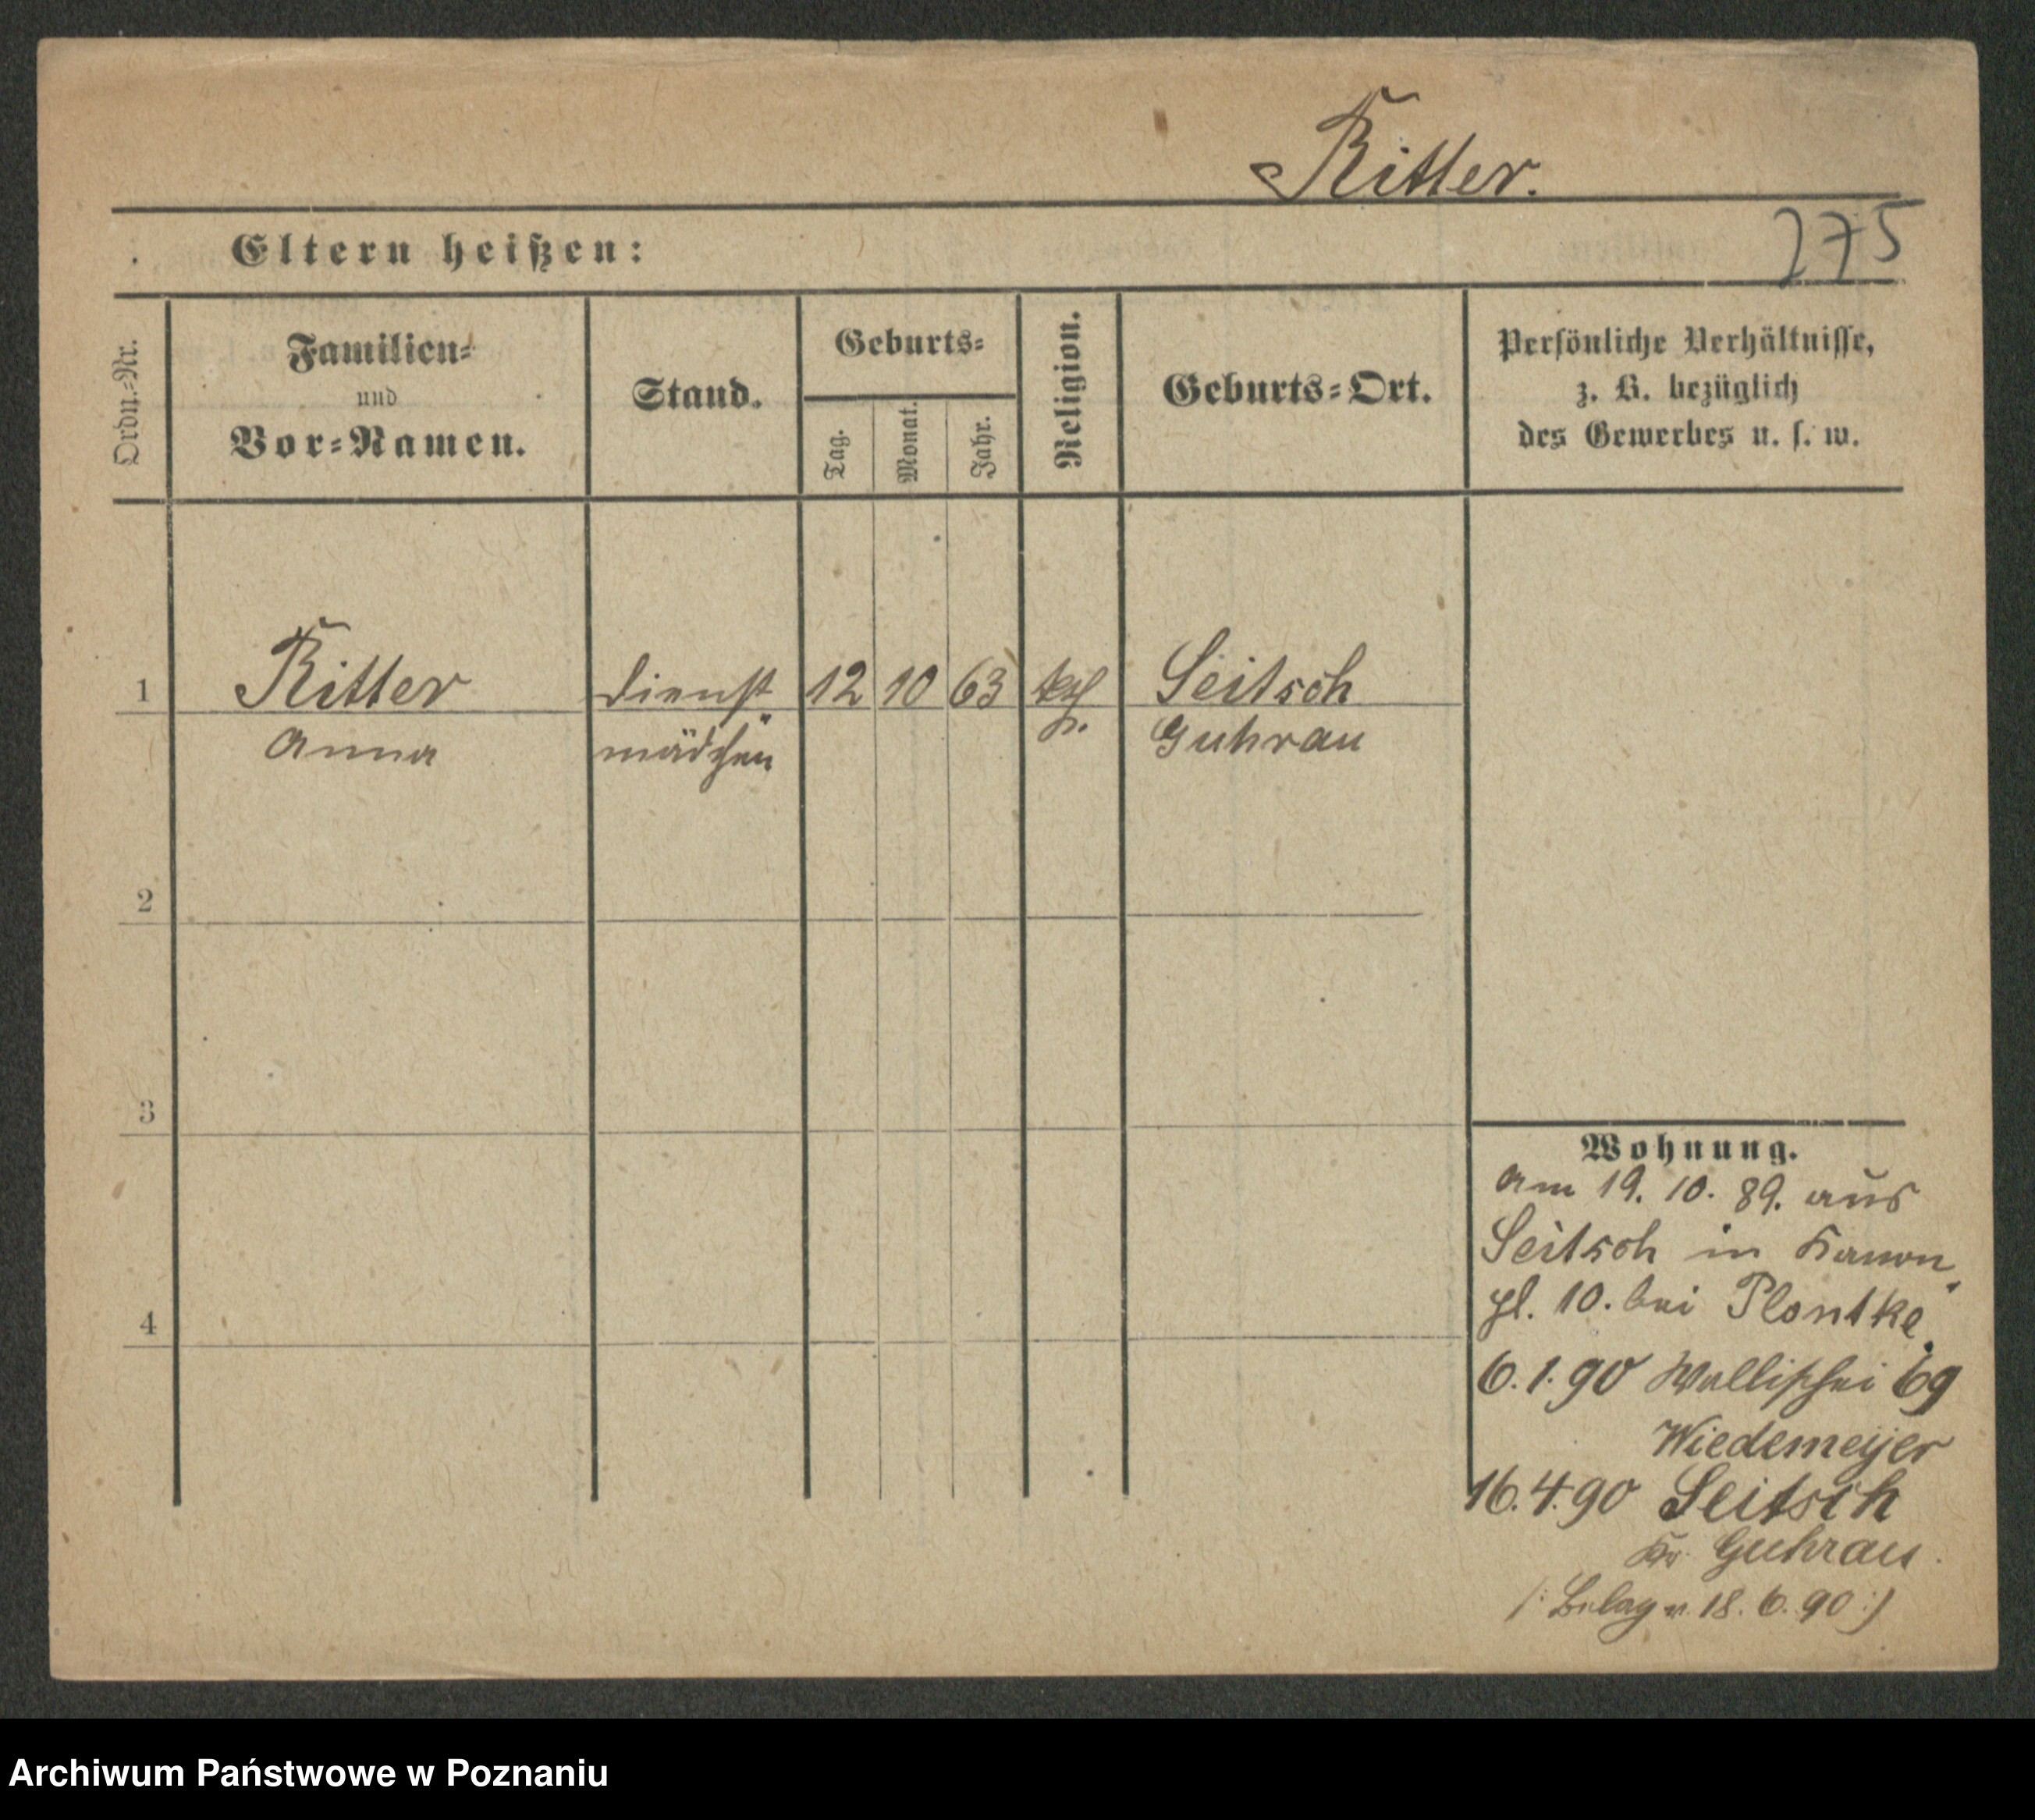 Ritter.
275
Eltern heißen:
Ordn.=Nr.
Familien=
und
Vor=Namen.
Stand.
Geburts=
Tag.
Monat.
Jahr.
Religion.
Geburts=Ort.
Persönliche Verhältnisse,
z. B. bezüglich
des Gewerbes u. s. w.
1
Ritter
Dienst
12
10
63
Seitsch
Anna
mädchen
Guhrau
2
3
4
Wohnung.
Am 19. 10. 89. aus
Seitsch in Kanon,
pl. 10. bei Plontke.
6.1.90 Wallischei 69
Wiedemeyer
16.4.90 Seitsch
Kr. Guhrau.
/: Belag v. 18. 6. 90 :/
Archiwum Państwowe w Poznaniu